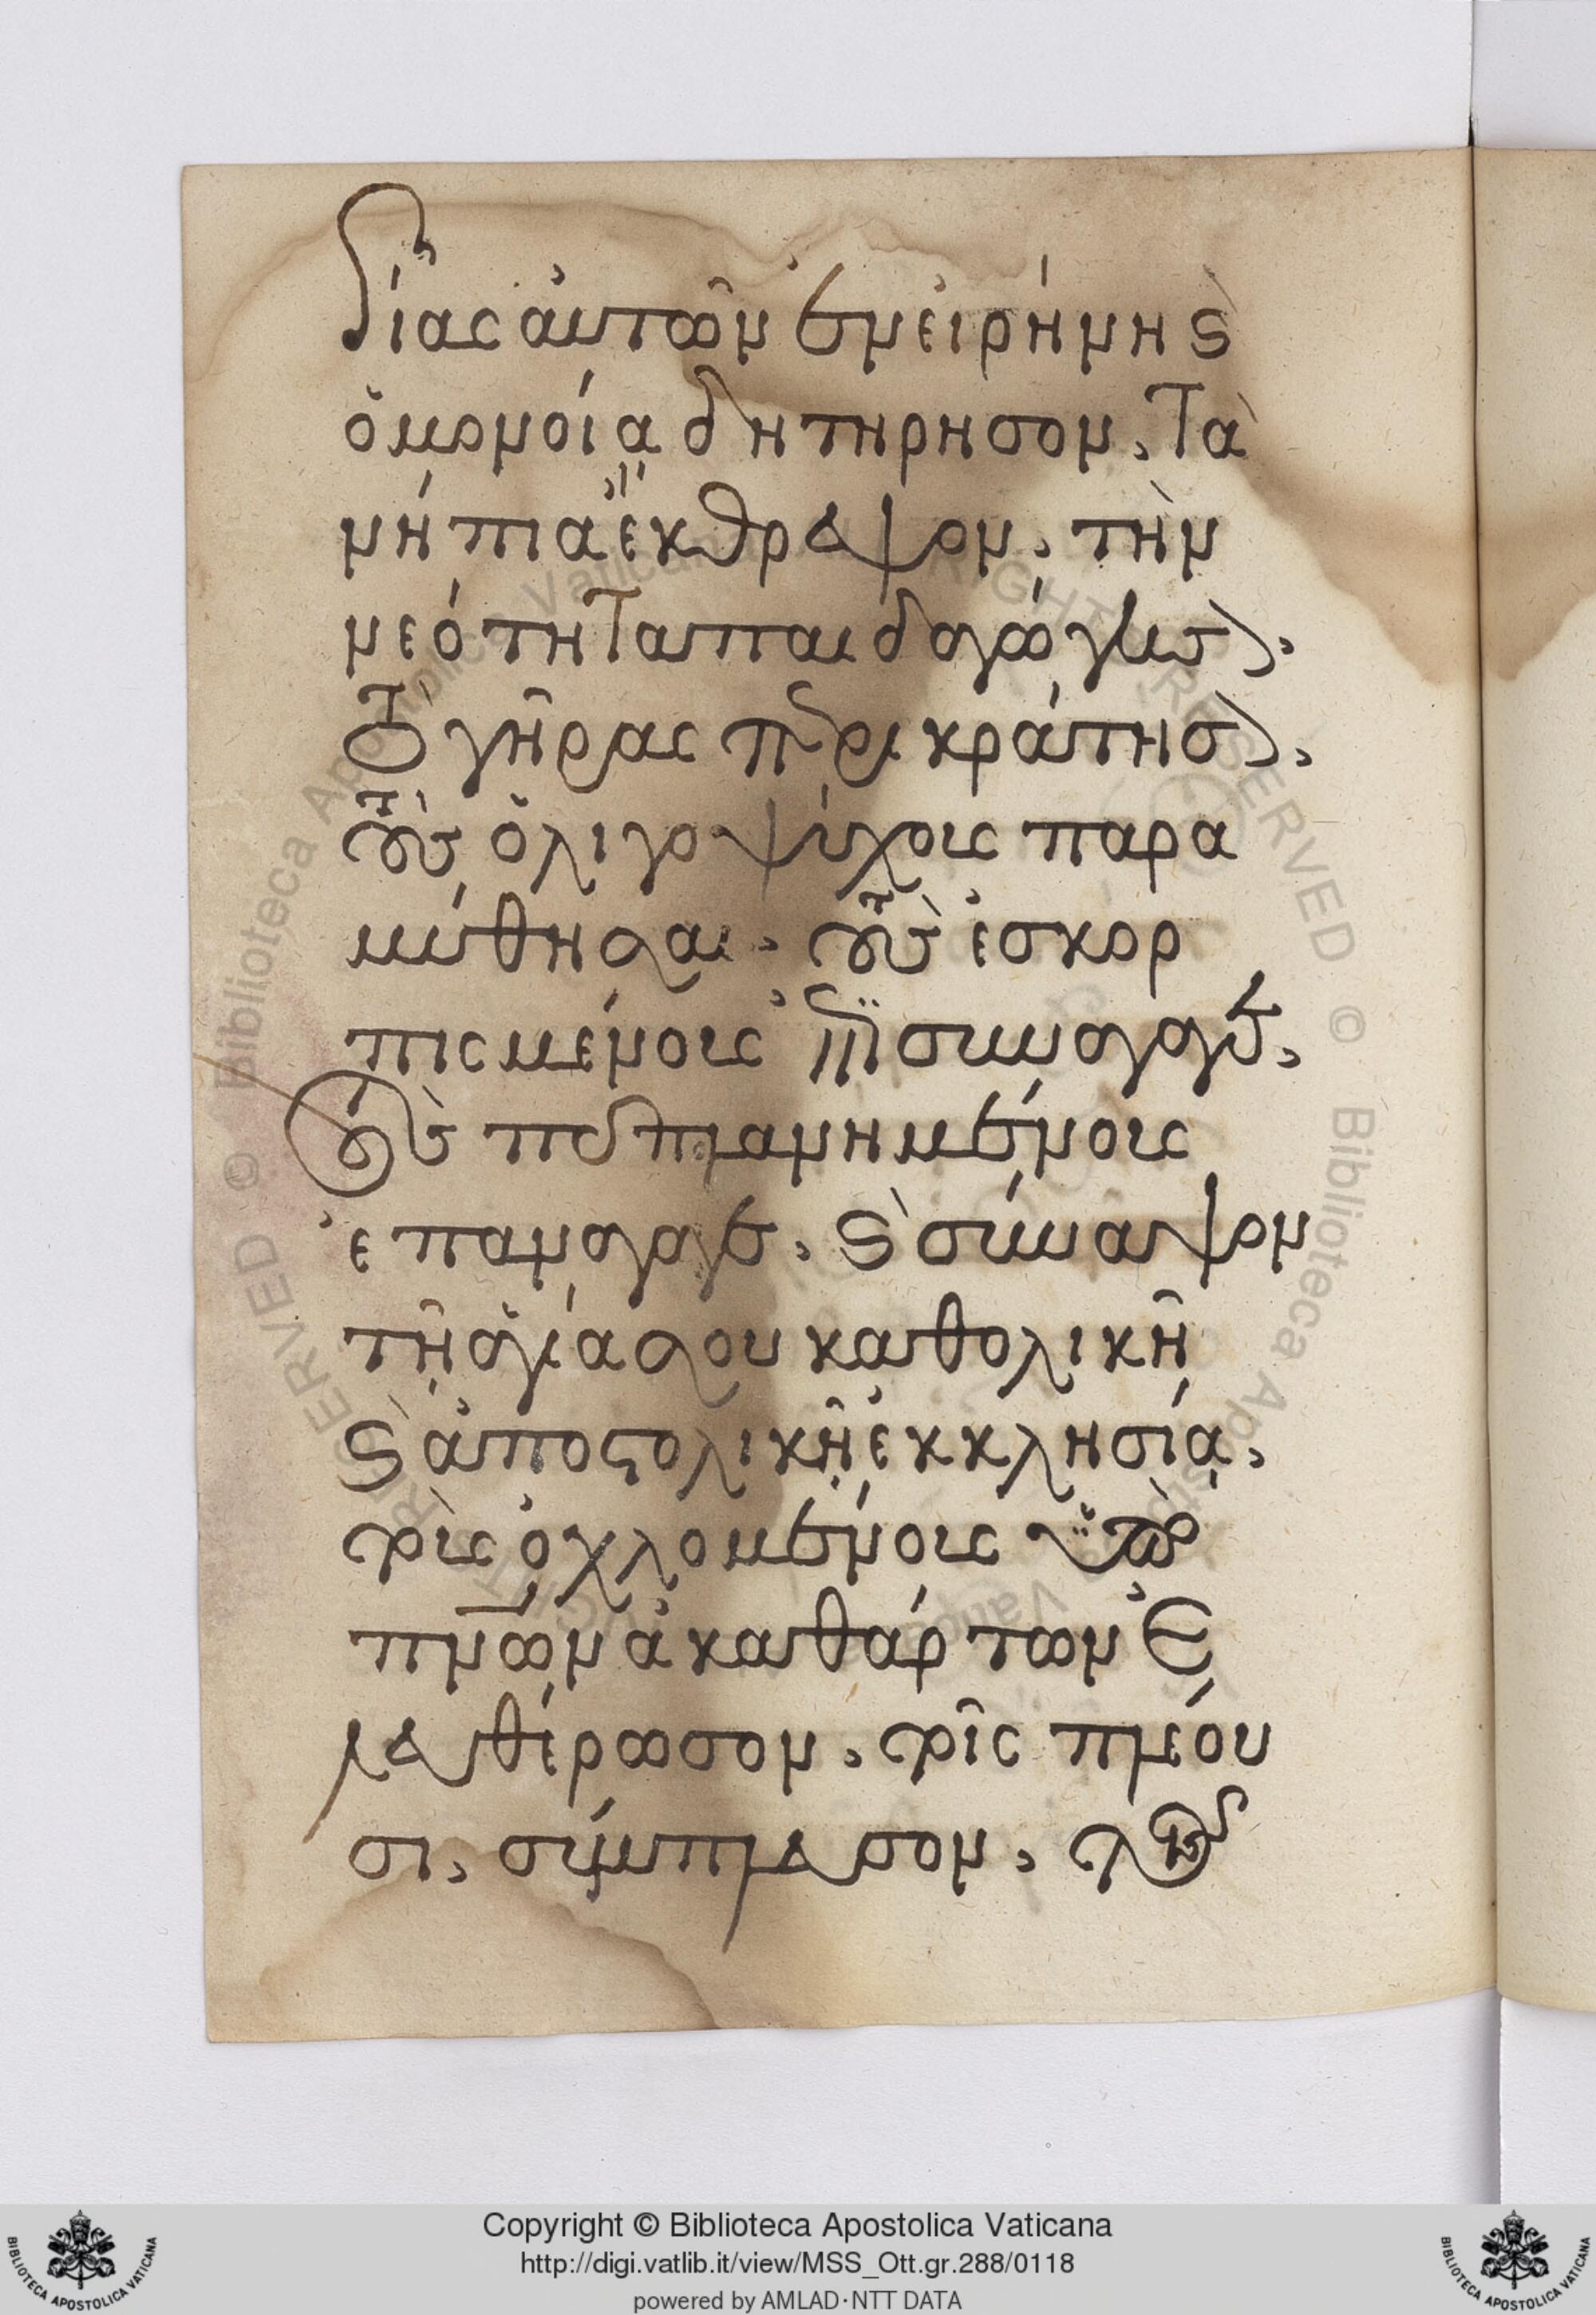 γίας αὐτῶν ἐν εἰρήνη ϗ
ὁμονοία δητηρησον. τα
νήπια ἔκθραψον. τὴν
νεότητα παιδαγώγησον.
τὸ γῆρας περικράτησον.
τοὺς ὀλιγοψύχοις παρα
μύθησαι. τοὺς ἐσκορ
πισμένοις ἐπισυναγαγε.
τοὺς πεπλανημένοις
ἐπαναγαγε. ϗ σύναψον
τῆ ἁγία σου καθολικῆ
ϗ ἀποστολικῆ ἐκκλησία.
τοὺς ὀχλουμένοις ὑπὸ
πνων ἀκαθάρτων ἐ
λευθέρωσον. τοῖς πλέου
σι. σύμπλευσον. τοῖς
Copyright © Biblioteca Apostolica Vaticana
http://digi.vatlib.it/view/MSS_Ott.gr.288/0118
powered by AMLAD·NTT DATA